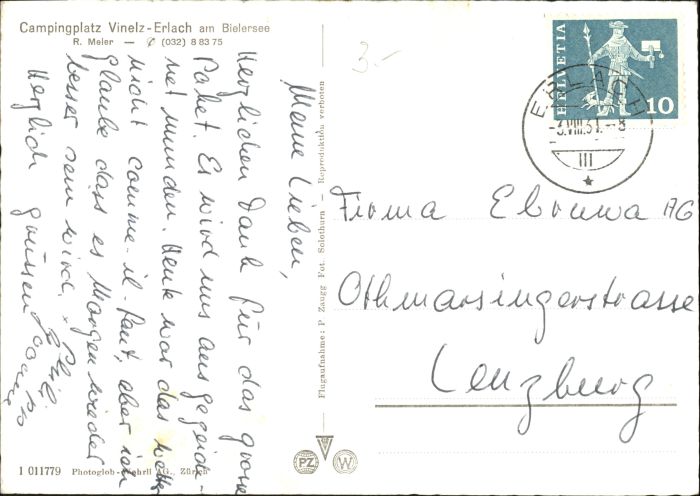 Campingplatz Vinelz-Erlach am Bielersee
R. Meier — ✆ (032) 8 83 75
Meine Lieben,
Herzlichen Dank für das grosse
Paket. Es wird uns ausgezeich-
net munden. Heute war das Wetter
nicht comme-il-faut, aber ich
glaube dass es Morgen wieder
besser sein wird.
Herzlich grüssen
Flugaufnahme: P. Zaugg Fot. Solothurn — Reproduktion verboten
HELVETIA
10
ERLACH
-3.VIII.61.-8
III
Firma Ebnuwa AG
Othmarsingerstrasse
Lenzburg
3.-
PZ
W
1 011779 Photoglob-Wehrli AG., Zürich